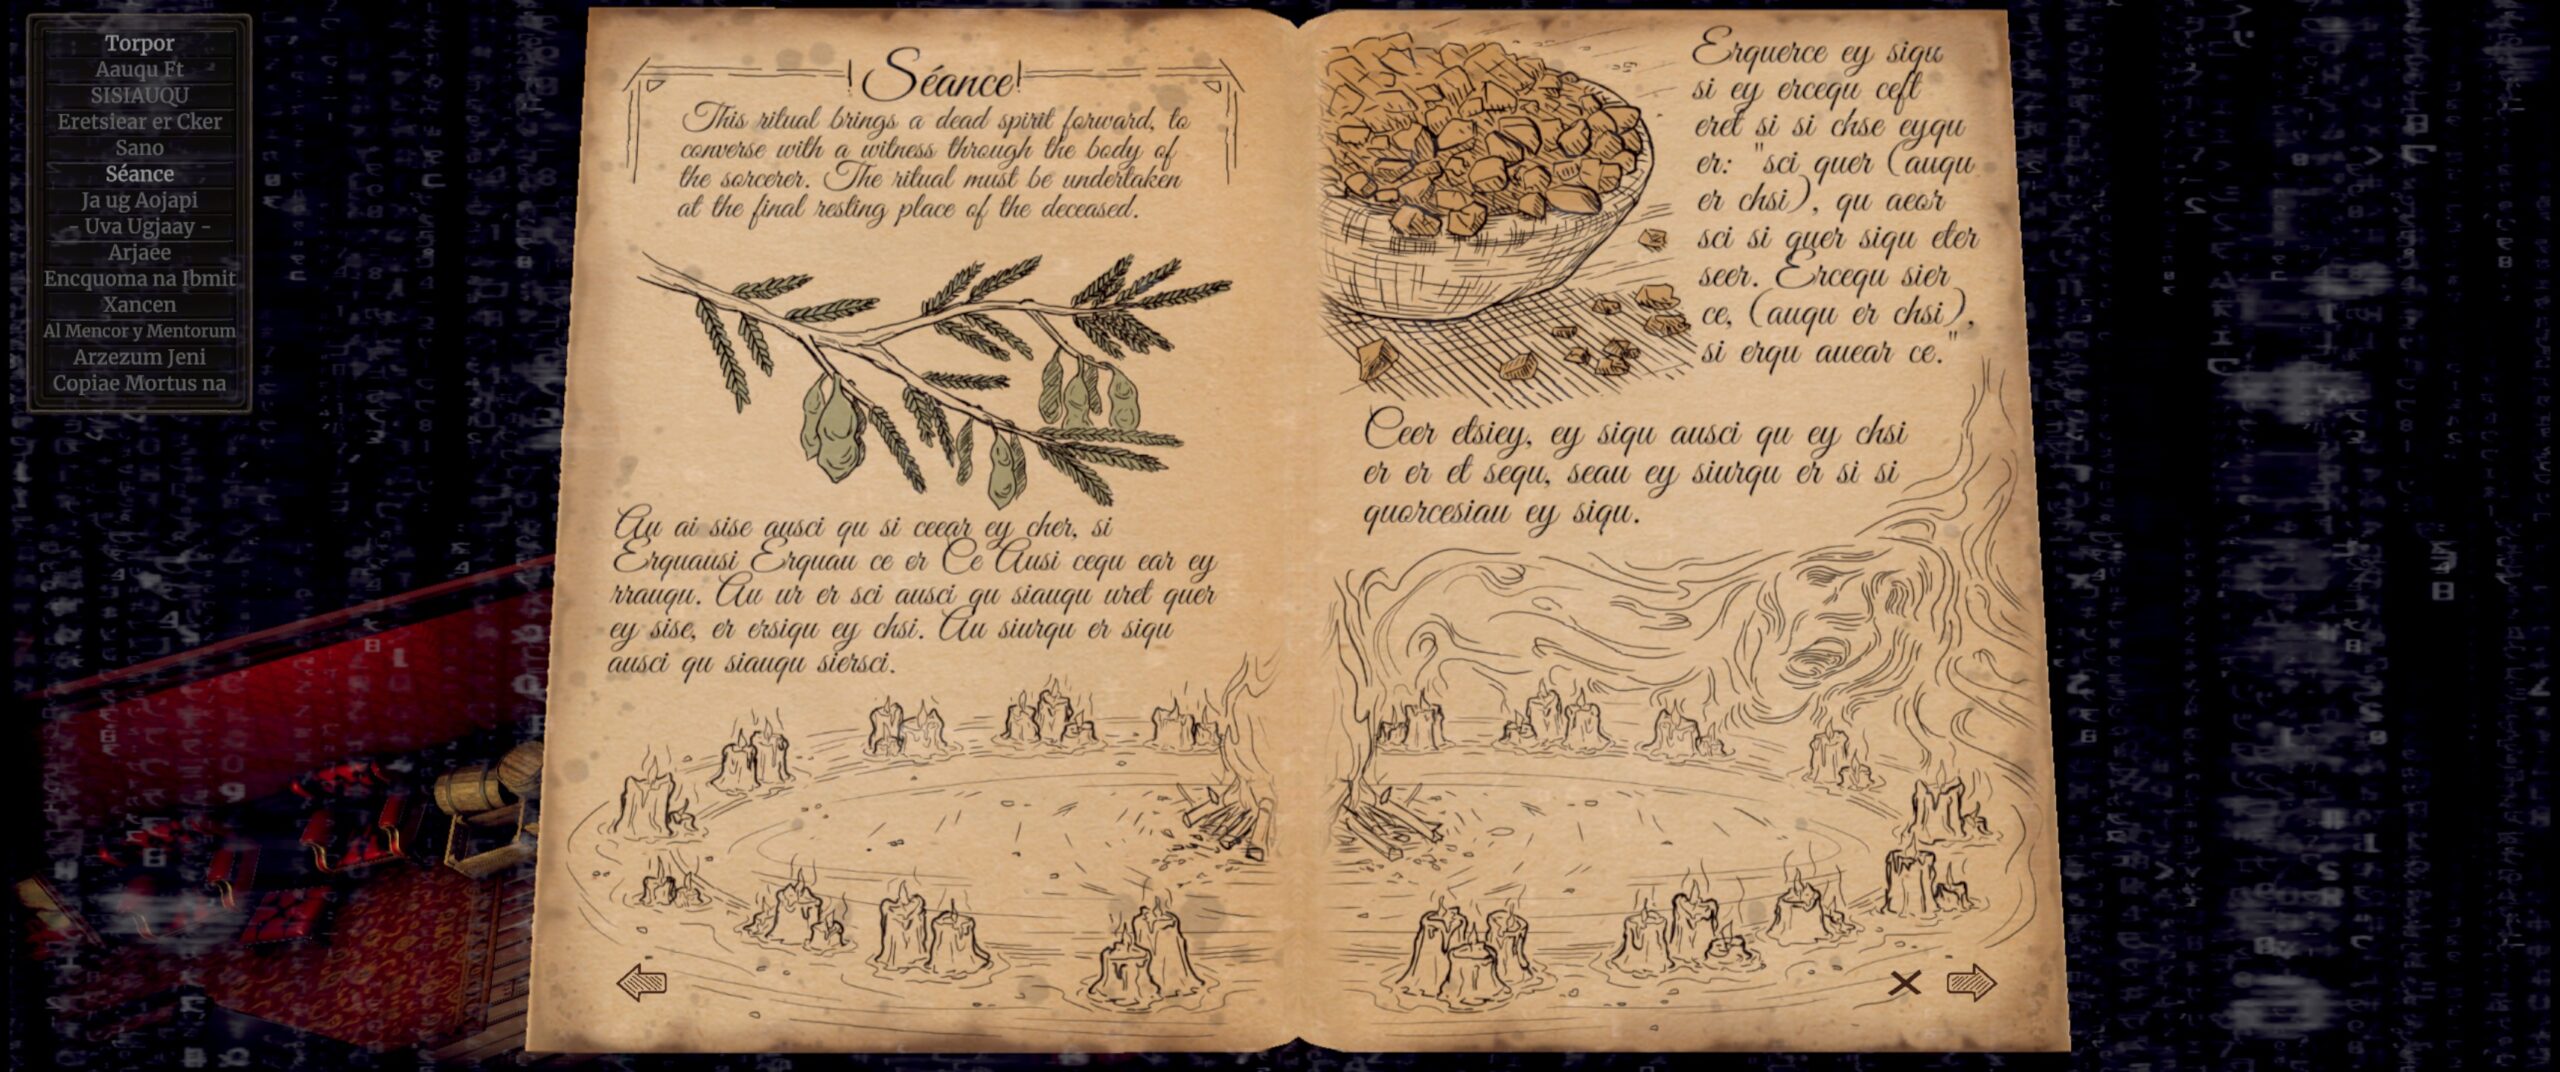 Torpor
Aauqu Ft
SISIAUQU
Eretsiear er Cker
Sano
Séance
Ja ug Aojapi
- Uva Ugjaay -
Arjaee
Encquoma na Ibmit
Xancen
Al Mencor y Mentorum
Arzezum Jeni
Copiae Mortus na
Séance
This ritual brings a dead spirit forward, to
converse with a witness through the body of
the sorcerer. The ritual must be undertaken
at the final resting place of the deceased.
Au ai sise ausci qu si ceear ey cher, si
Erquausi Erquau ce er Ce Ausi cequ ear ey
rrauqu. Au ur er sci ausci qu siauqu uret quer
ey sise, er ersiqu ey chsi. Au siurqu er siqu
ausci qu siauqu siersci.
Erquerce ey siqu
si ey ercequ ceft
eret si si chse eyqu
er: "sci quer (auqu
er chsi), qu aeor
sci si quer siqu eter
seer. Ercequ sier
ce, (auqu er chsi),
si erqu auear ce."
Ceer etsiey, ey siqu ausci qu ey chsi
er er et sequ, seau ey siurqu er si si
quorcesiau ey siqu.